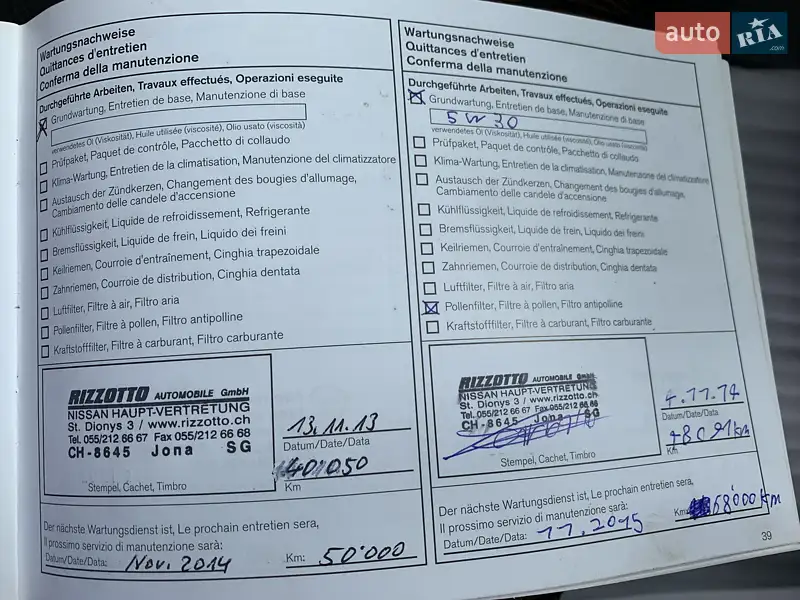 auto RIA .com
Wartungsnachweise
Quittances d'entretien
Conferma della manutenzione
Durchgeführte Arbeiten, Travaux effectués, Operazioni eseguite
Grundwartung, Entretien de base, Manutenzione di base
verwendetes Öl (Viskosität), Huile utilisée (viscosité), Olio usato (viscosità)
Prüfpaket, Paquet de contrôle, Pacchetto di collaudo
Klima-Wartung, Entretien de la climatisation, Manutenzione del climatizzatore
Austausch der Zündkerzen, Changement des bougies d'allumage,
Cambiamento delle candele d'accensione
Kühlflüssigkeit, Liquide de refroidissement, Refrigerante
Bremsflüssigkeit, Liquide de frein, Liquido dei freini
Keilriemen, Courroie d'entraînement, Cinghia trapezoidale
Zahnriemen, Courroie de distribution, Cinghia dentata
Luftfilter, Filtre à air, Filtro aria
Pollenfilter, Filtre à pollen, Filtro antipolline
Kraftstofffilter, Filtre à carburant, Filtro carburante
RIZZOTTO AUTOMOBILE GmbH
NISSAN HAUPT-VERTRETUNG
St. Dionys 3 / www.rizzotto.ch
Tel. 055/212 66 67 Fax 055/212 66 68
CH-8645 Jona SG
Stempel, Cachet, Timbro
13.11.13
Datum/Date/Data
Km
Der nächste Wartungsdienst ist, Le prochain entretien sera,
Il prossimo servizio di manutenzione sarà:
Datum/Date/Data: Nov. 2014 Km: 50'000
Wartungsnachweise
Quittances d'entretien
Conferma della manutenzione
Durchgeführte Arbeiten, Travaux effectués, Operazioni eseguite
Grundwartung, Entretien de base, Manutenzione di base
5W30
verwendetes Öl (Viskosität), Huile utilisée (viscosité), Olio usato (viscosità)
Prüfpaket, Paquet de contrôle, Pacchetto di collaudo
Klima-Wartung, Entretien de la climatisation, Manutenzione del climatizzatore
Austausch der Zündkerzen, Changement des bougies d'allumage,
Cambiamento delle candele d'accensione
Kühlflüssigkeit, Liquide de refroidissement, Refrigerante
Bremsflüssigkeit, Liquide de frein, Liquido dei freini
Keilriemen, Courroie d'entraînement, Cinghia trapezoidale
Zahnriemen, Courroie de distribution, Cinghia dentata
Luftfilter, Filtre à air, Filtro aria
Pollenfilter, Filtre à pollen, Filtro antipolline
Kraftstofffilter, Filtre à carburant, Filtro carburante
RIZZOTTO AUTOMOBILE GmbH
NISSAN HAUPT-VERTRETUNG
St. Dionys 3 / www.rizzotto.ch
Tel. 055/212 66 67 Fax 055/212 66 68
CH-8645 Jona SG
Stempel, Cachet, Timbro
Datum/Date/Data
Km
Der nächste Wartungsdienst ist, Le prochain entretien sera,
Il prossimo servizio di manutenzione sarà:
Datum/Date/Data: 11.2015 Km: 68'000 Km
39